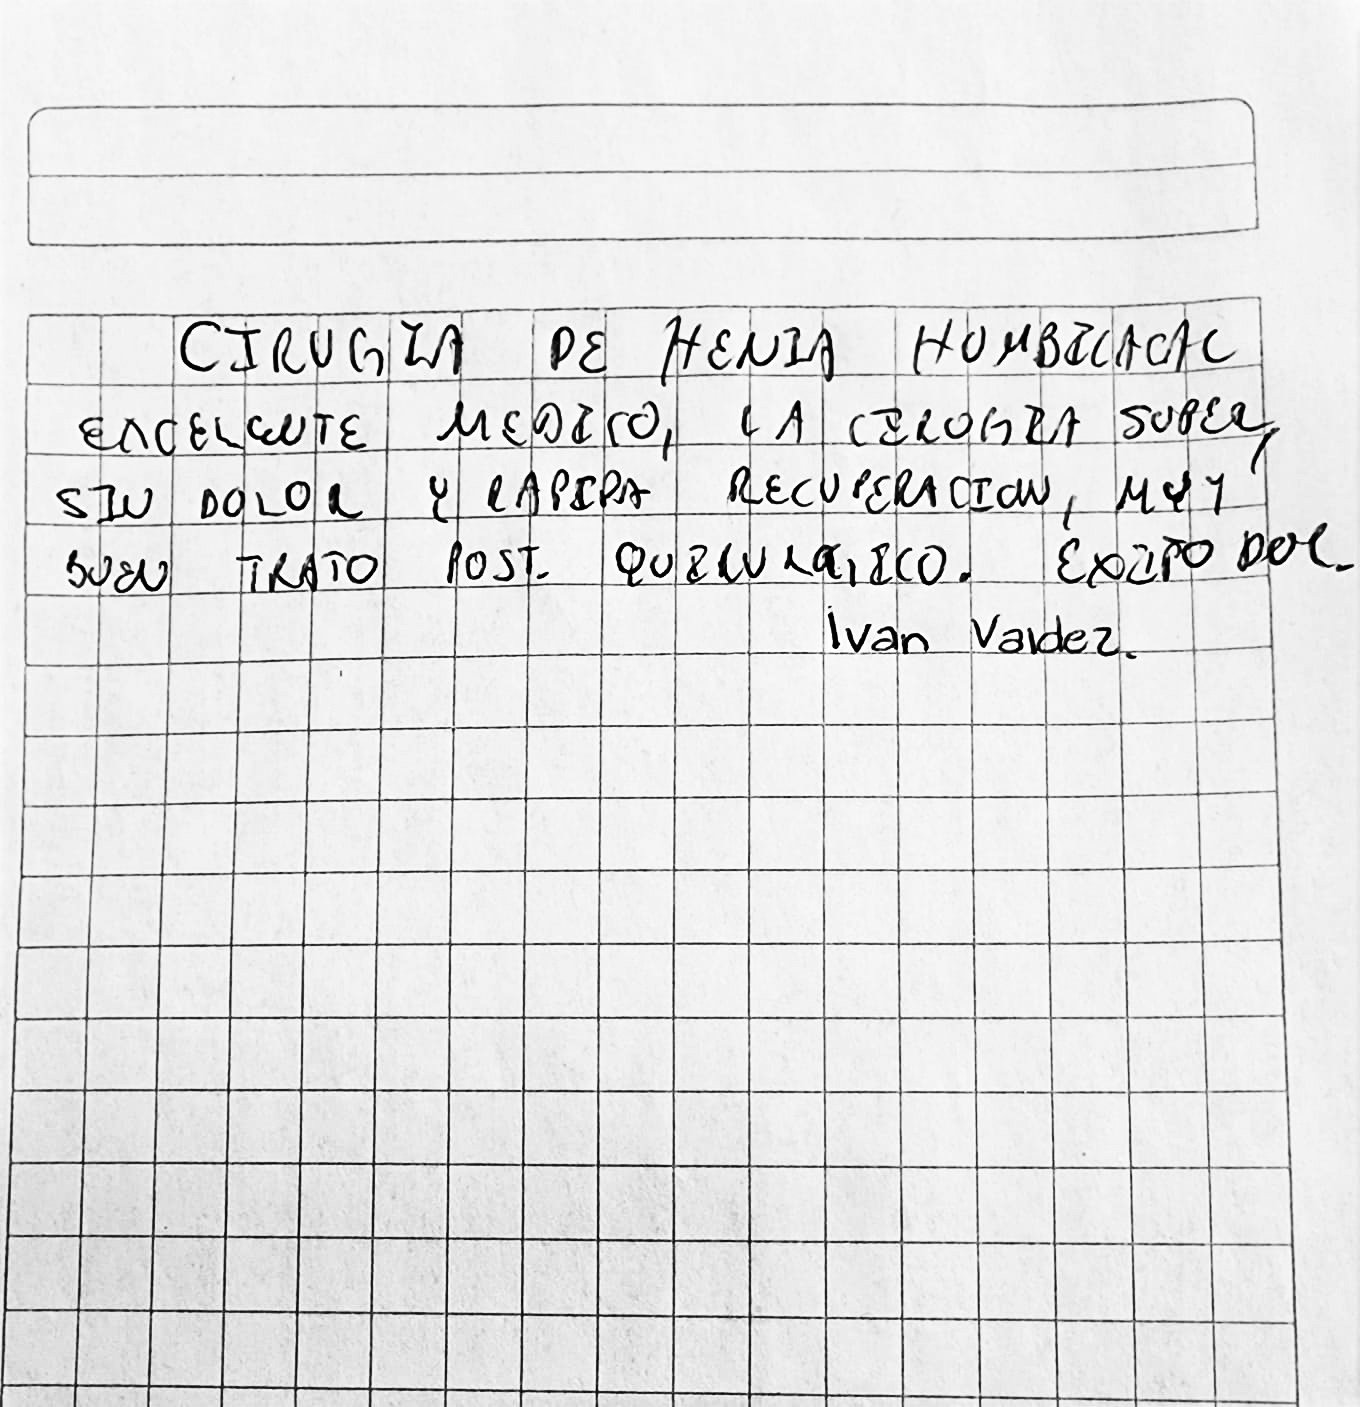 CIRUGIA DE HENIA HUMBILCACAL
EXCELENTE MEDICO, LA CIROGIA SUPER,
SIN DOLOR Y RAPIDA RECUPERACION, MUY
BUEN TRATO POST. QUIRURGICO. EXITO DOC.
Ivan Valdez.